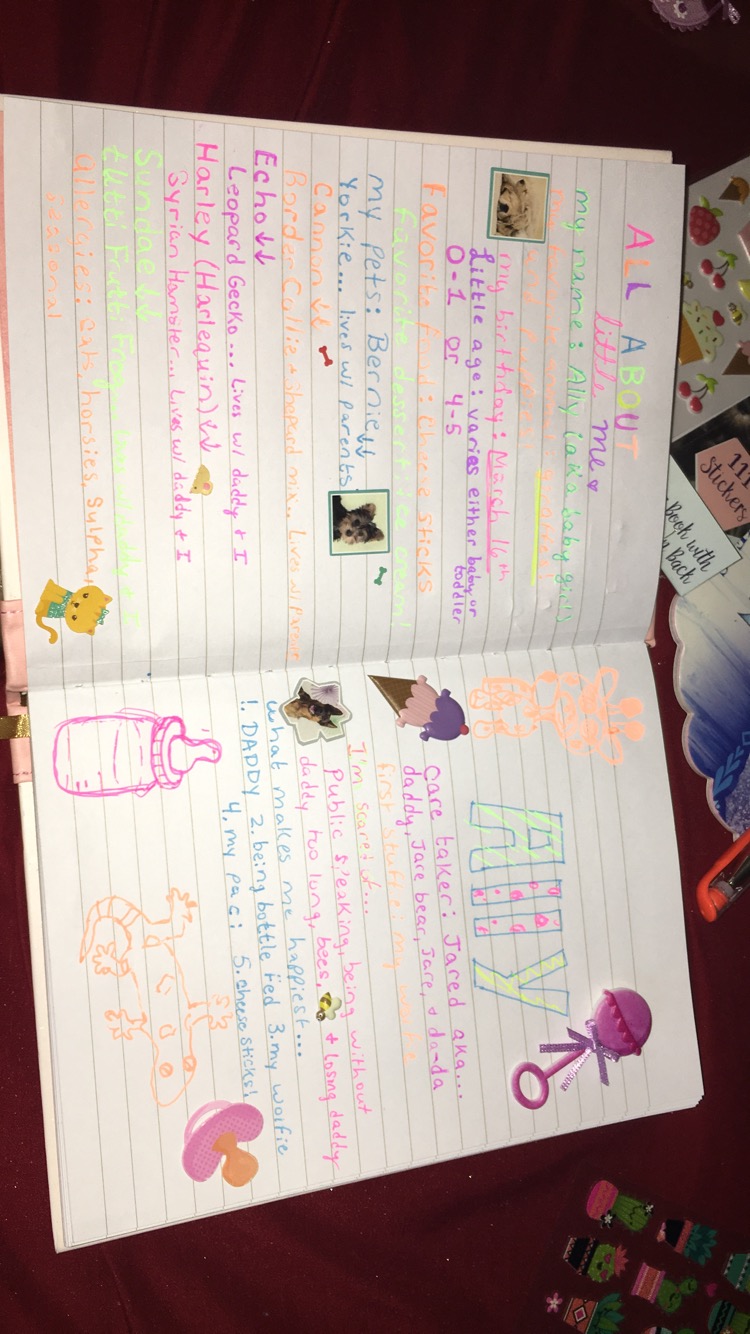 ALL ABOUT
little me
my name: Ally (aka baby girl)
my favorite animal: giraffes
and puppies!
my birthday: March 16th
Little age: varies either baby or
toddler
0-1 or 4-5
favorite food: cheese sticks
favorite dessert: ice cream!
my pets: Bernie ↓↓
Yorkie... lives w/ parents
Cannon ↓↓
Border Collie + Shepard mix.. Lives w/ parents
Echo ↓↓
Leopard Gecko... Lives w/ daddy + I
Harley (Harlequin) ↓↓
Syrian Hamster... Lives w/ daddy + I
Sundae ↓↓
tutti Frutti Frog... lives w/ daddy + I
allergies: cats, horsies, sulpha,
seasonal
Ally
Care taker: Jared aka...
daddy, Jare bear, Jare, + da-da
first stuffei: my wolfie
I'm scared of...
public speaking, being without
daddy too long, bees, + losing daddy
what makes me happiest...
1. DADDY 2. being bottle fed 3. my wolfie
4. my paci 5. cheese sticks!
111
Stickers
Book with
Back